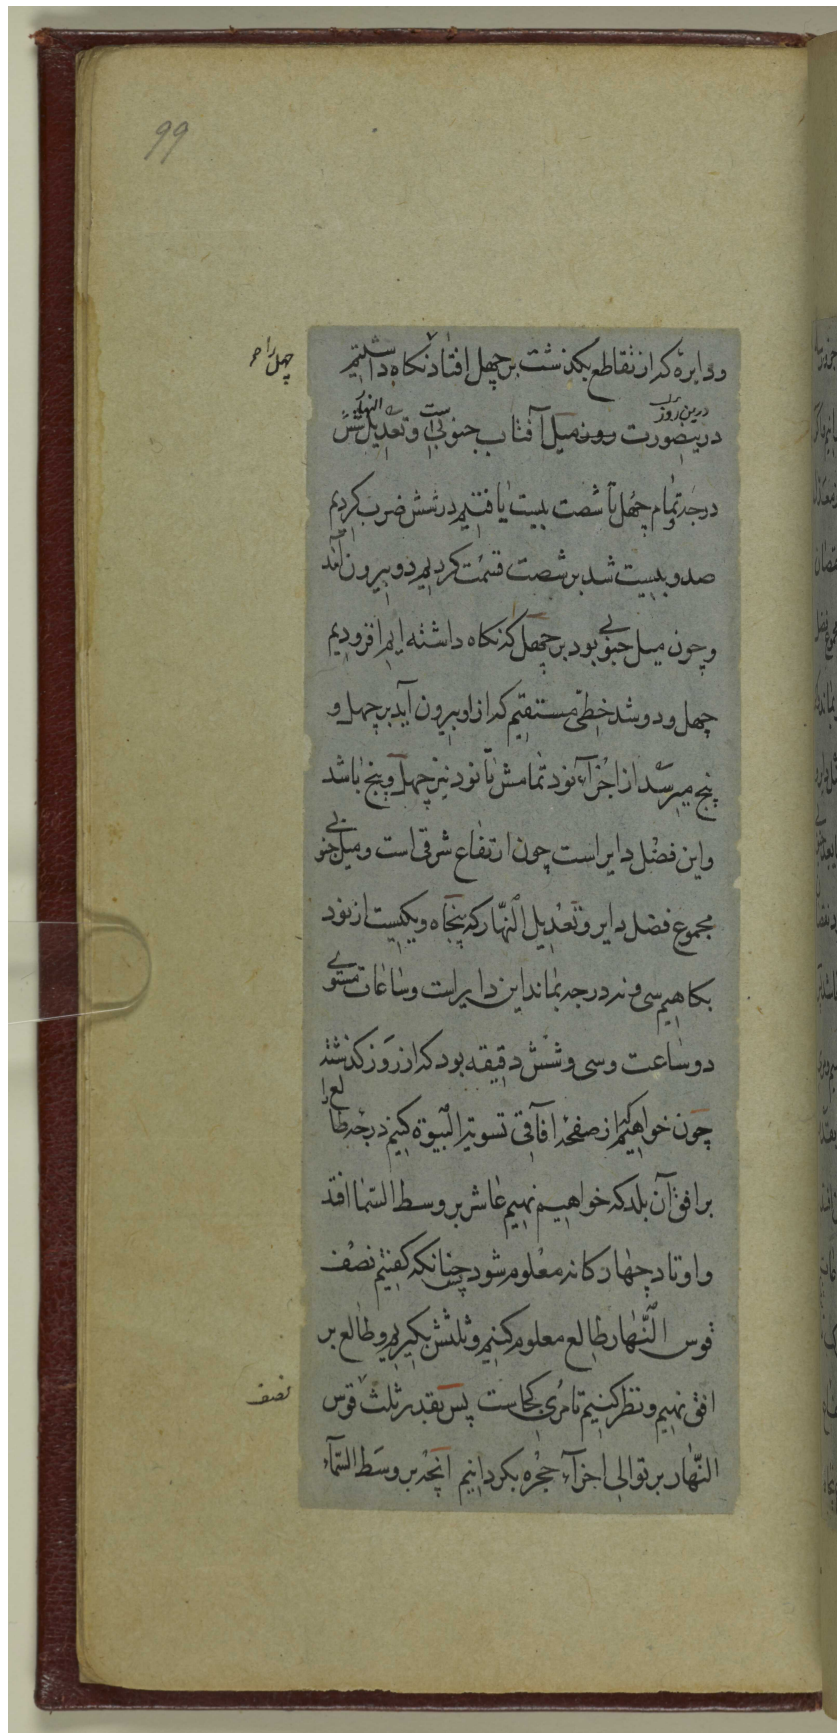 99
ودایره که از تقاطع بگذشت بر چهل افتاد نکاه داشتیم
چهل را
درین روز
النهار
درینصورت میل آفتاب جنوبی است وتعدیل شش
درجه وتمام چهل تا شصت بیست یافتیم در شش ضرب کردیم
صد وبیست شد بر شصت قسمت کردیم دو بیرون آمد
وچون میل جنوبی بود بر چهل که نکاه داشته ایم افزودیم
چهل ودو شد خطی مستقیم که از او بیرون آید بر چهل و
پنج میرسد از اجزآء نود تمامش تا نود نیز چهل وپنج باشد
واین فضل دایر است چون ارتفاع شرقی است ومیل جنوبی
مجموع فضل دایر وتعدیل النهار که پنجاه ویکیست از نود
بکاهیم سی ونه درجه بماند این دایر است وساعات مستوی
دو ساعت وسی وشش دقیقه بود که از روز کذشته
چون خواهیم که از صفحه آفاقی تسویة البیوت کنیم درجه طالع را
بر افق آن بلد که خواهیم نهیم عاشر بر وسط السما افتد
واوتاد چهارکانه معلوم شود چنانکه کفتیم پس نصف
قوس النهار طالع معلوم کنیم وثلثش بکیریم وطالع بر
افق نهیم ونظر کنیم تا مری کجاست پس بقدر ثلث قوس
نصف
النهار بر توالی اجزآء حجره بکردانیم انچه بر وسط السمآء